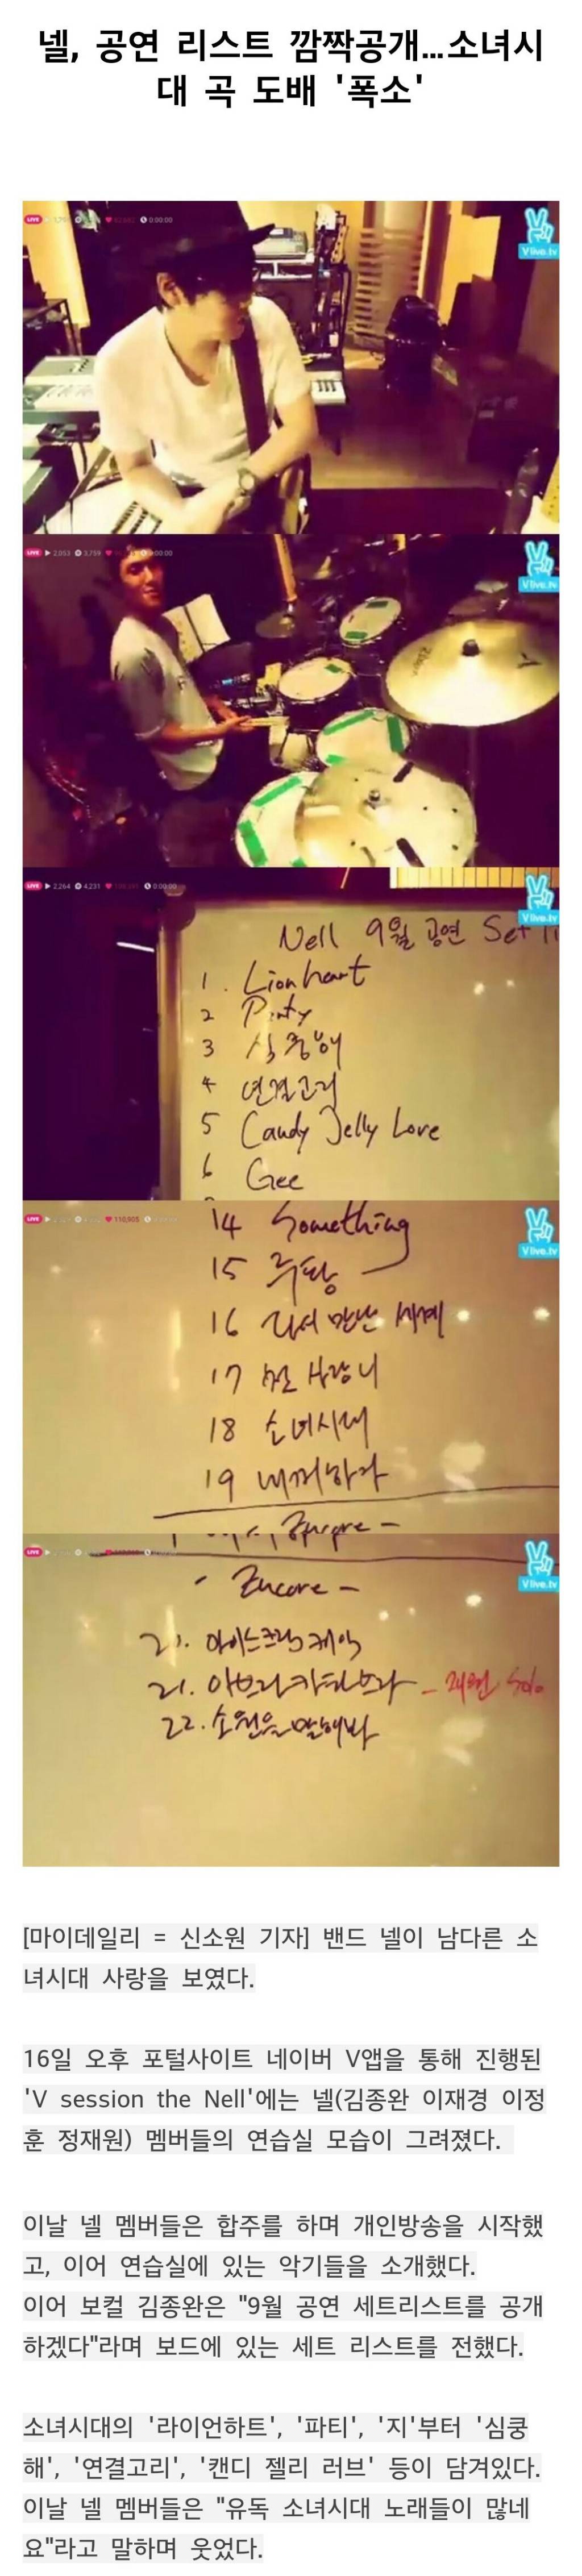 넬, 공연 리스트 깜짝공개...소녀시
대 곡 도배 '폭소'
LIVE 0:00:00
V
Vlive.tv
LIVE 2,053 3,759 0:00:00
V
Vlive.tv
LIVE 2,264 4,231 0:00:00
V
Vlive.tv
Nell 9월 공연 Set li
1. Lionhart
2 Party
3 심쿵해
4 연결고리
5 Candy Jelly Love
6 Gee
LIVE 110,905
V
Vlive.tv
14 Something
15 루팡
16 다시 만난 세계
17
18 소녀시대
19 내꺼하자
Encore -
LIVE
V
Vlive.tv
- Encore -
21. 아이스크림 케익
21. 아브라카다브라 - 재원 Solo
22. 소원을 말해봐
[마이데일리 = 신소원 기자] 밴드 넬이 남다른 소
녀시대 사랑을 보였다.
16일 오후 포털사이트 네이버 V앱을 통해 진행된
'V session the Nell'에는 넬(김종완 이재경 이정
훈 정재원) 멤버들의 연습실 모습이 그려졌다.
이날 넬 멤버들은 합주를 하며 개인방송을 시작했
고, 이어 연습실에 있는 악기들을 소개했다.
이어 보컬 김종완은 "9월 공연 세트리스트를 공개
하겠다"라며 보드에 있는 세트 리스트를 전했다.
소녀시대의 '라이언하트', '파티', '지'부터 '심쿵
해', '연결고리', '캔디 젤리 러브' 등이 담겨있다.
이날 넬 멤버들은 "유독 소녀시대 노래들이 많네
요"라고 말하며 웃었다.